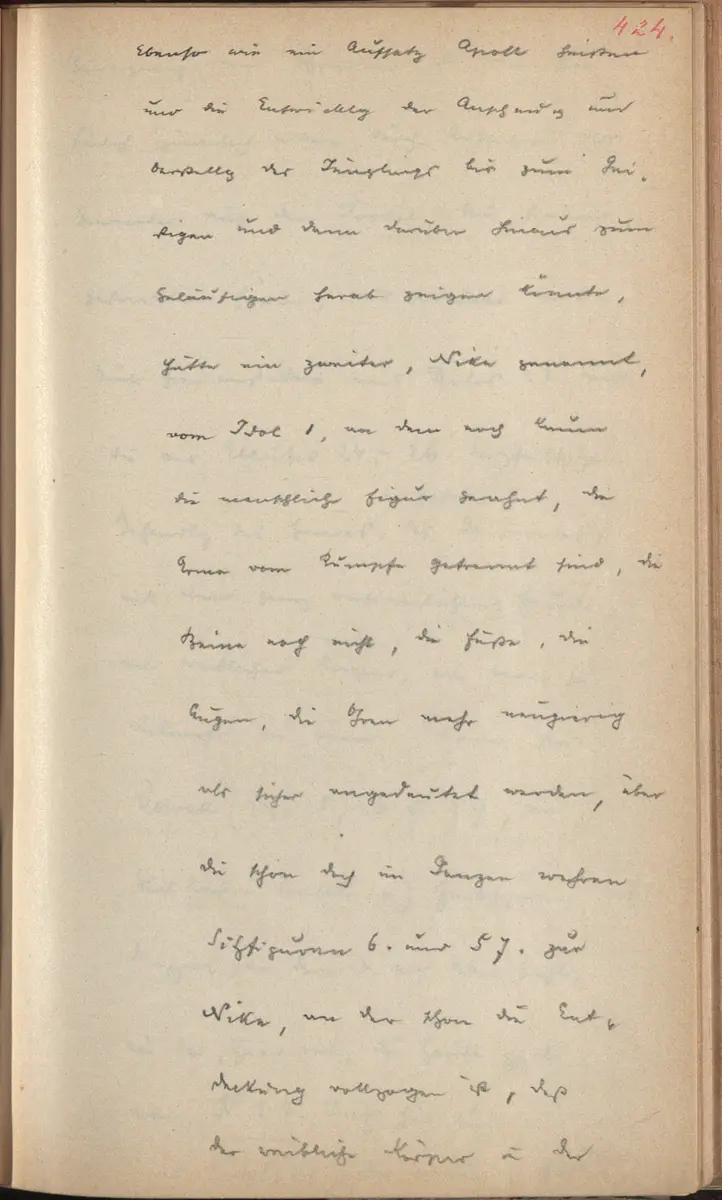 424.
Ebenso wie ein Aufsatz Apoll heißen
und die Entwicklg der Anschauug und
Darstellg des Jünglings bis zum Gei-
stigen und dann darüber hinaus zum
Geläufigen herab zeigen könnte,
hätte ein zweiter, Nike genannt,
vom Idol 1, an dem noch kaum
die menschliche Figur geahnt, die
Arme vom Rumpfe getrennt sind, die
Beine noch nicht, die Füße, die
Augen, die Oren mehr neugierig
als sicher angedeutet werden, über
die schon doch im Ganzen wahren
Sitzfiguren 6. und 57. zur
Nike, an der schon die Ent-
deckung vollzogen ist, daß
der weibliche Körper in der